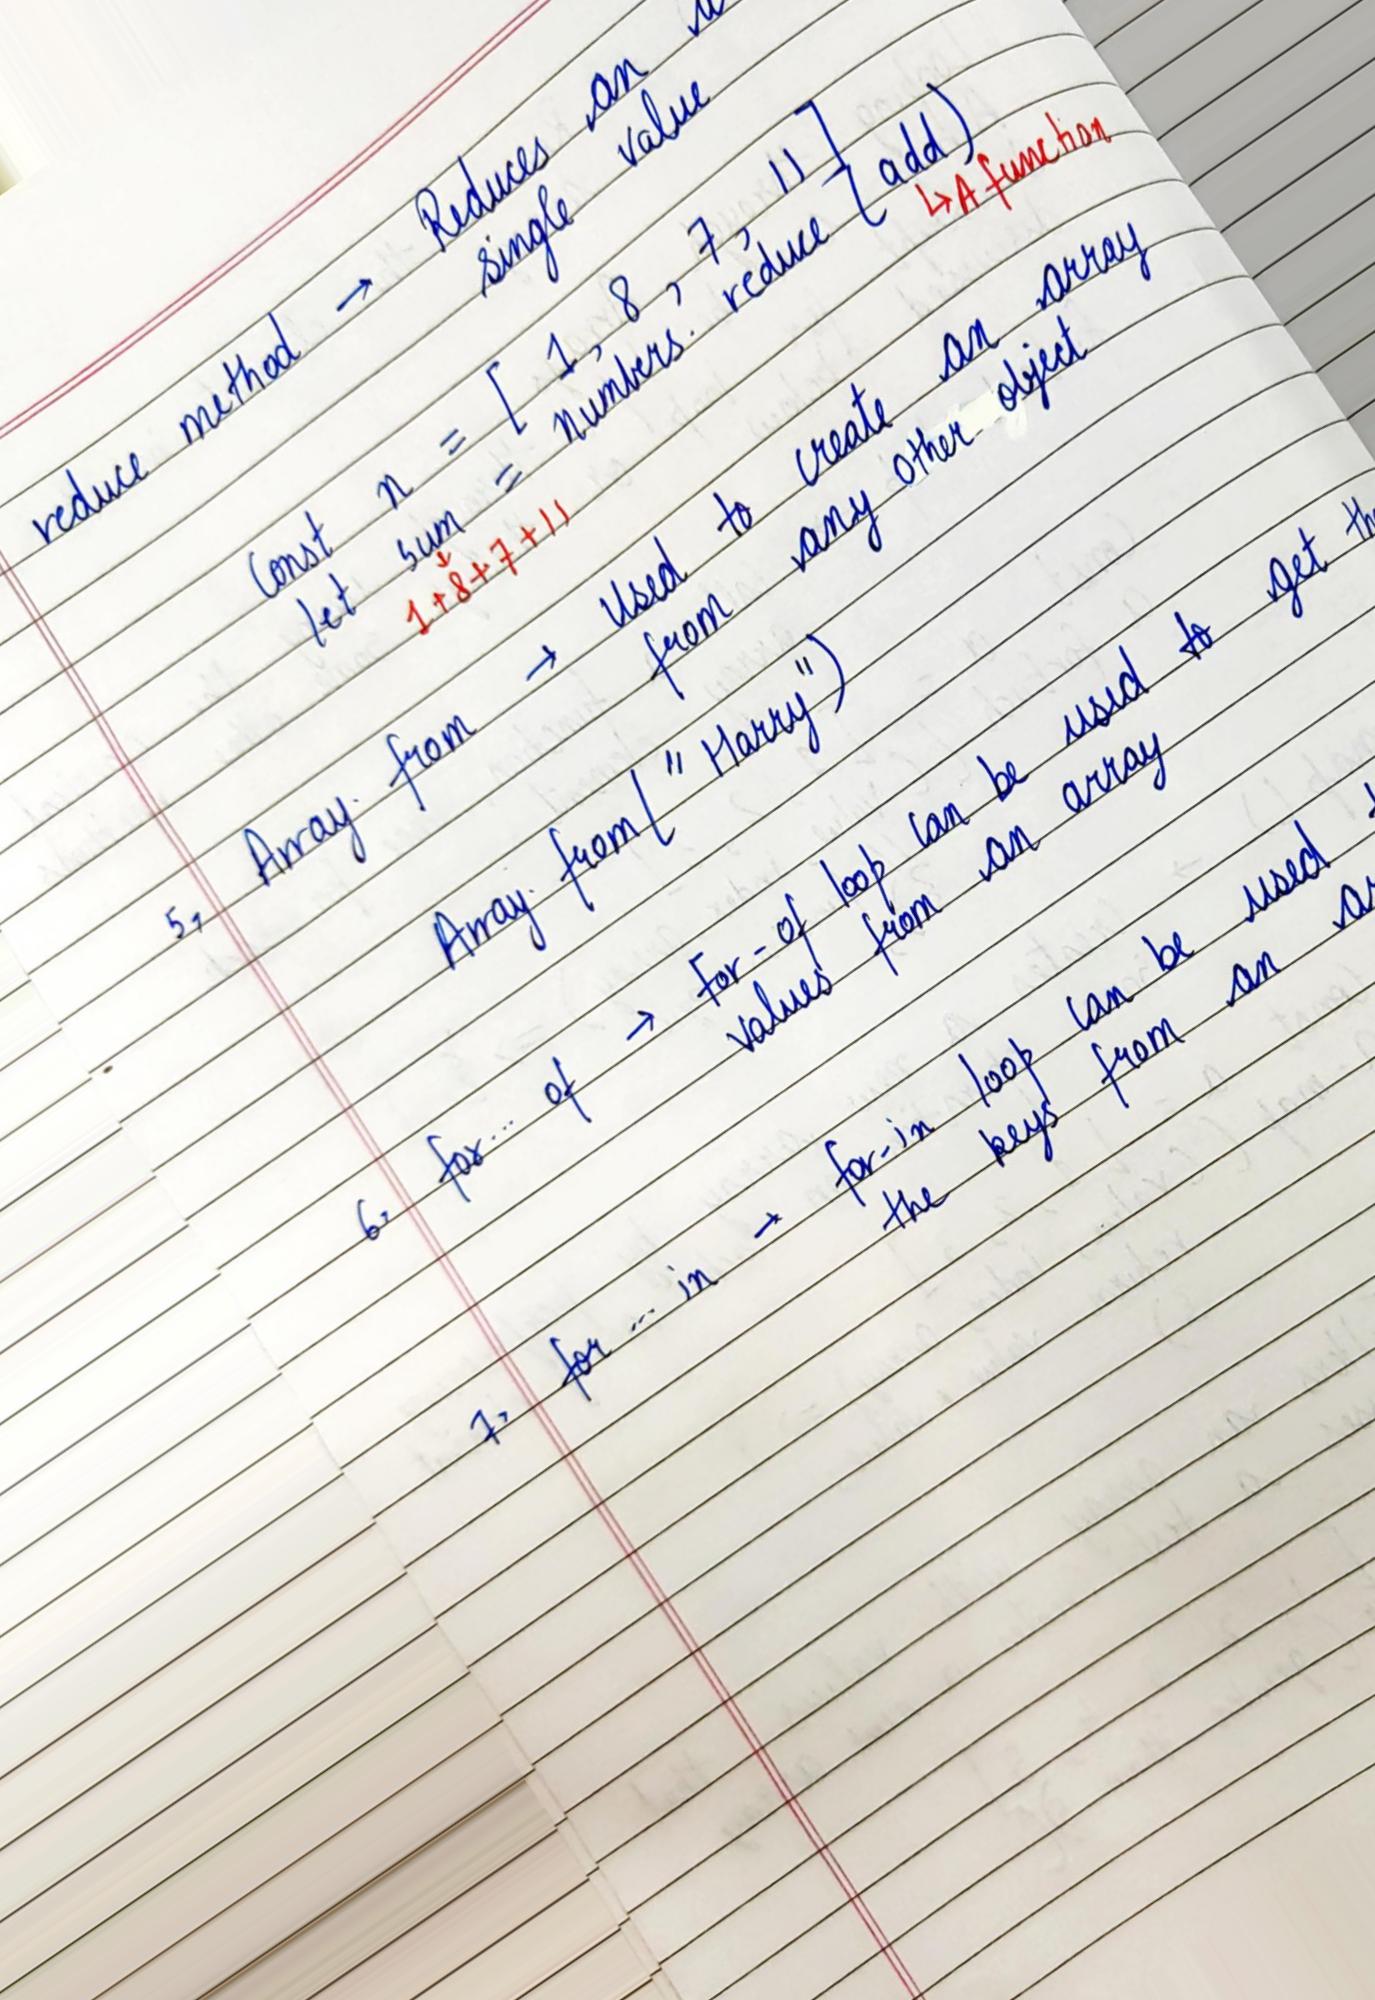 reduce method → Reduces an
single value
Const n = [ 1, 8, 7, 11 ]
let sum = numbers. reduce (add)
↳ A function
↓
1+8+7+11
5, Array. from → Used to create an array
from any other object
Array. from ("Harry")
6, for... of → For-of loop can be used to get the
values from an array
7, for ... in → for-in loop can be used
the keys from an